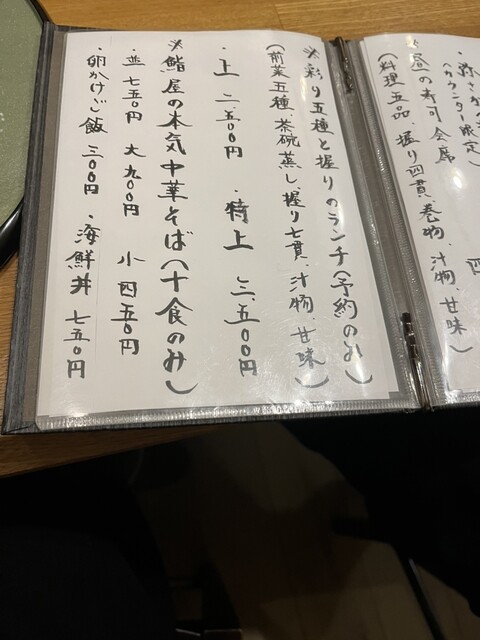 (カウンター限定)
※昼の寿司会席
(料理五品、握り四貫、巻物、汁物、甘味)
※彩り五種と握りのランチ(予約のみ)
(前菜五種、茶碗蒸し、握り七貫、汁物、甘味)
・上 二、五〇〇円 ・特上 三、五〇〇円
※鮨屋の本気中華そば(十食のみ)
・並 七五〇円 大 九〇〇円 小 四五〇円
・卵かけご飯 三〇〇円 ・海鮮丼 七五〇円